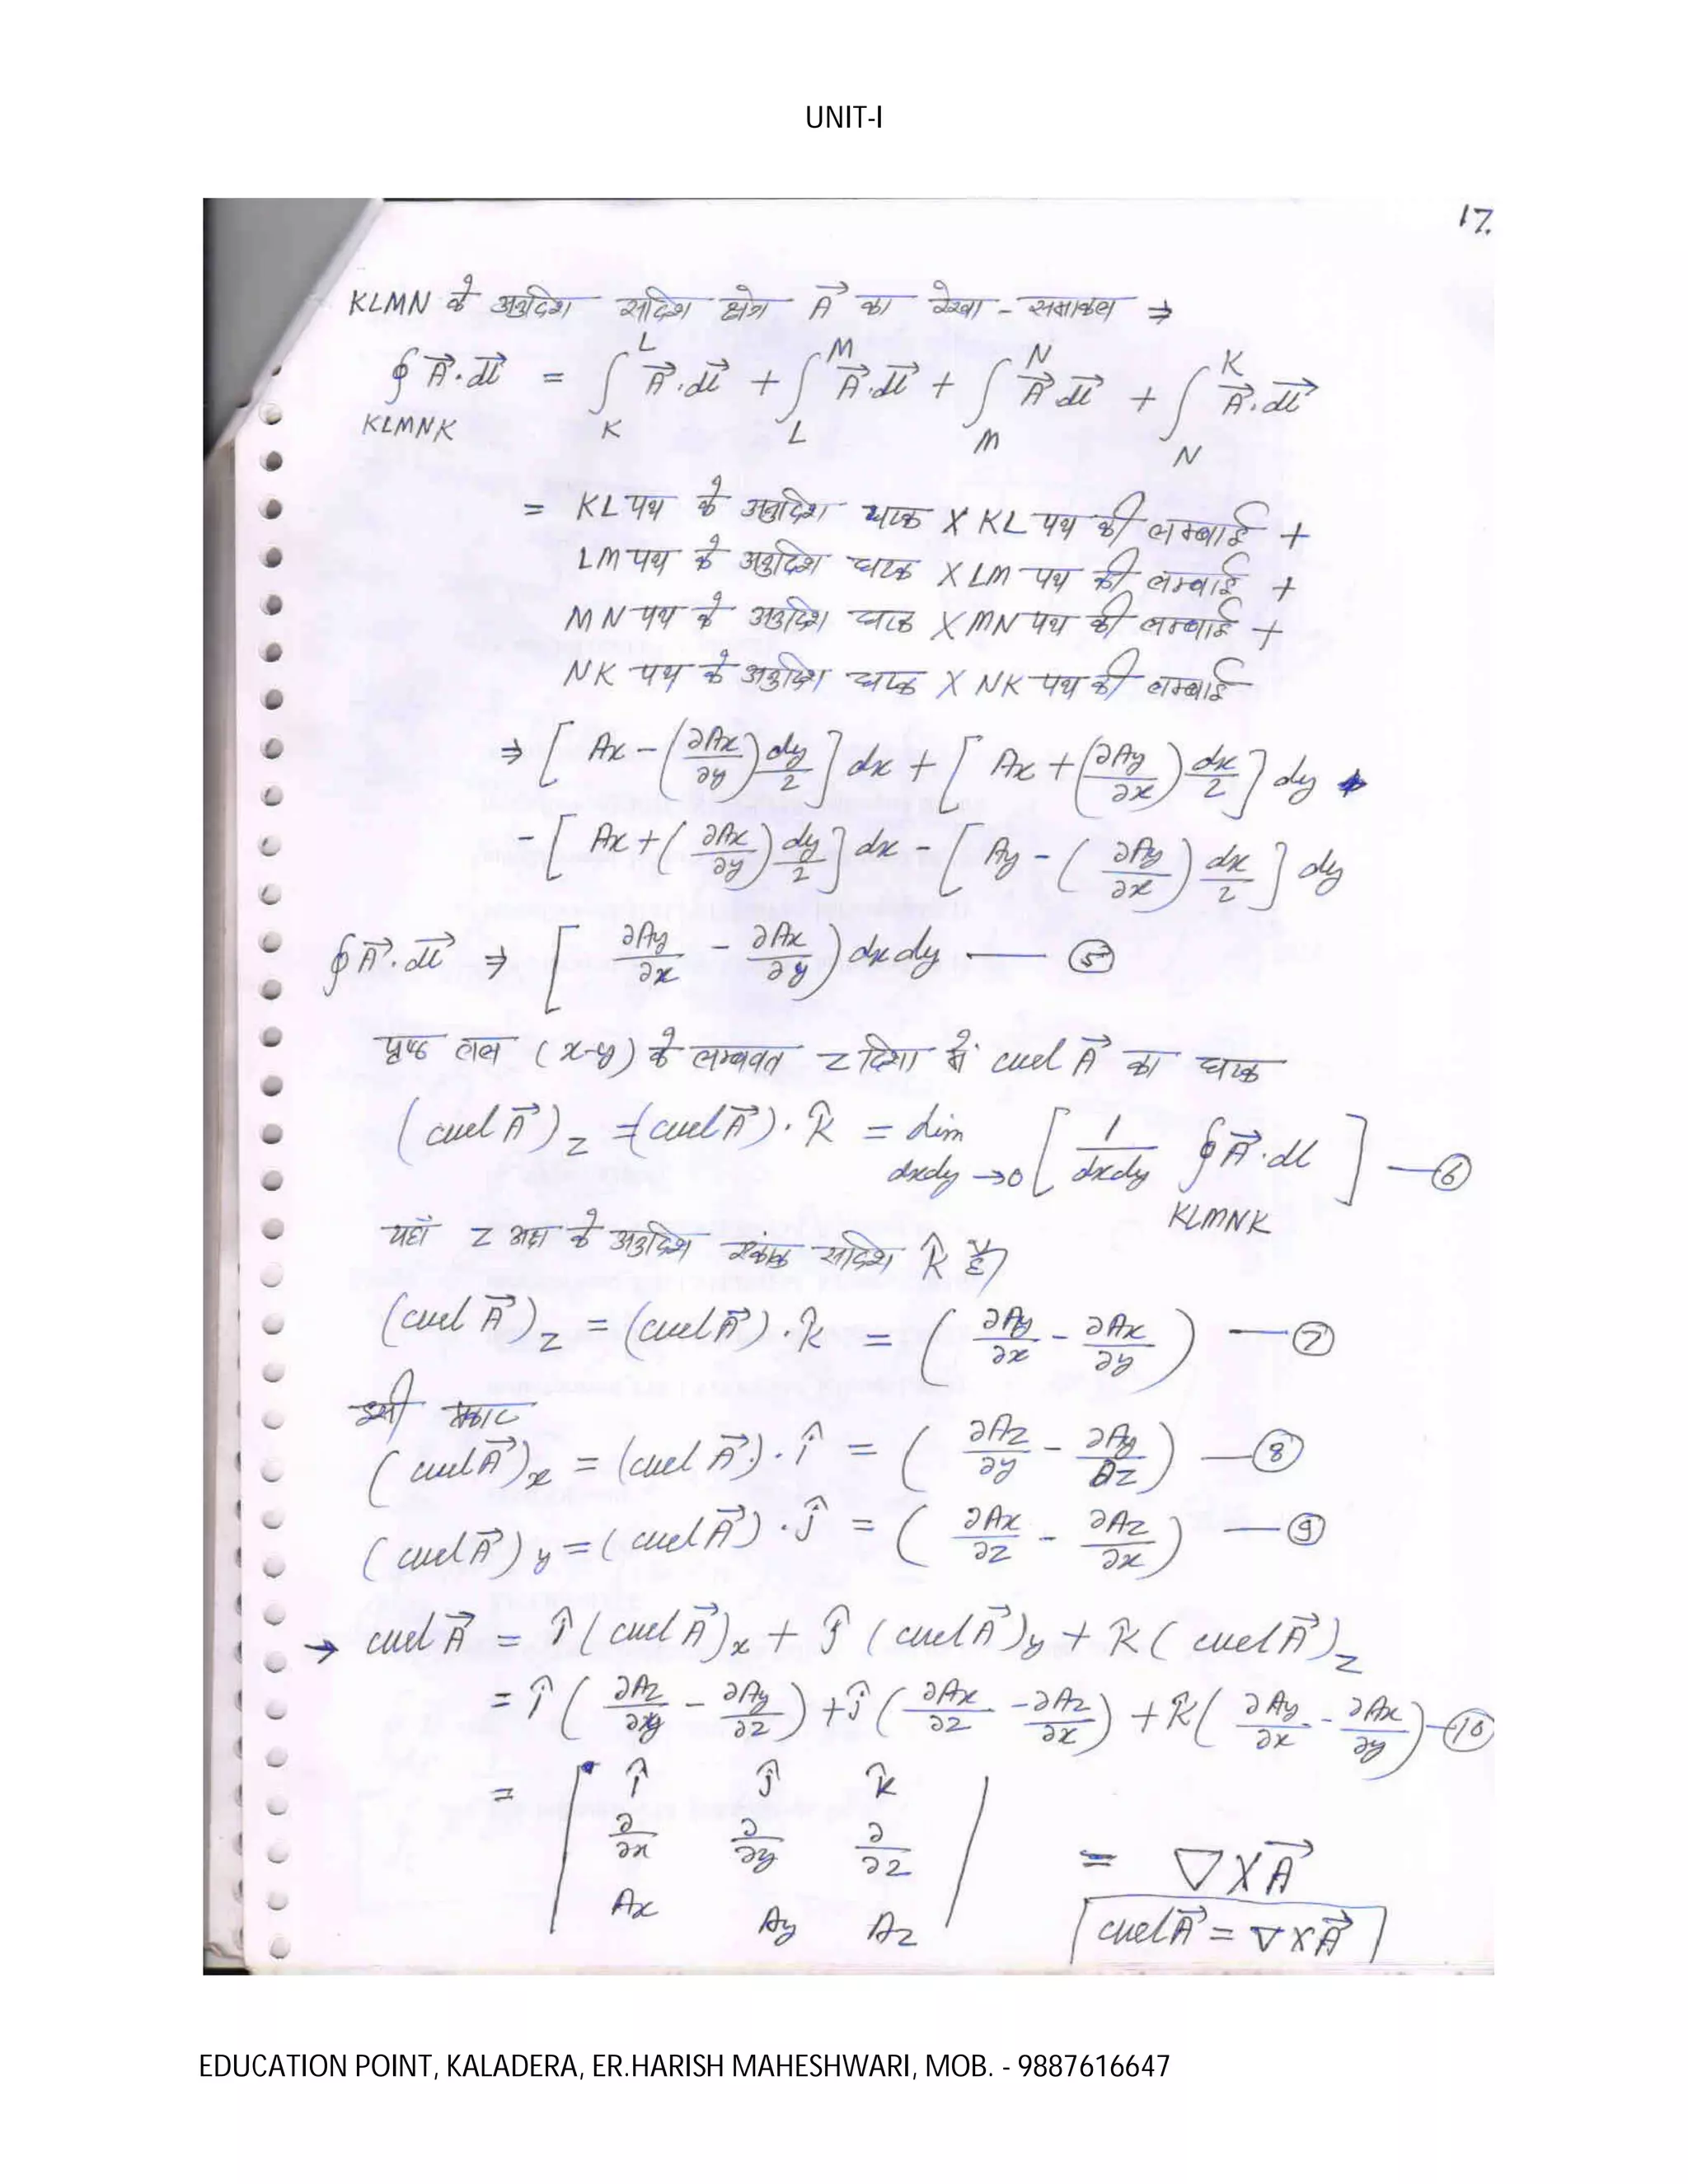 UNIT-I
17.
KLMN के अनुदिश सदिश क्षेत्र A⃗ का रेखा-समाकल ⇒
∮_KLMNK A⃗.dl⃗ = ∫_K^L A⃗.dl⃗ + ∫_L^M A⃗.dl⃗ + ∫_M^N A⃗ dl⃗ + ∫_N^K A⃗.dl⃗
= KL पथ के अनुदिश घटक X KL पथ की लम्बाई +
LM पथ के अनुदिश घटक X LM पथ की लम्बाई +
MN पथ के अनुदिश घटक X MN पथ की लम्बाई +
NK पथ के अनुदिश घटक X NK पथ की लम्बाई
⇒ [ Ax - (∂Ax/∂y) dy/2 ] dx + [ Ax + (∂Ay/∂x) dx/2 ] dy
- [ Ax + (∂Ax/∂y) dy/2 ] dx - [ Ay - (∂Ay/∂x) dx/2 ] dy
∮A⃗.dl⃗ ⇒ [ ∂Ay/∂x - ∂Ax/∂y ) dxdy — ⑤
पृष्ठ तल (x-y) के लम्बवत z दिशा में curl A⃗ का घटक
(curl A⃗)z = (curl A⃗).k̂ = Lim dxdy→0 [ 1/dxdy ∮_KLMNK A⃗.dl ] — ⑥
यहाँ z अक्ष के अनुदिश एकांक सदिश k̂ है
(curl A⃗)z = (curl A⃗).k̂ = ( ∂Ay/∂x - ∂Ax/∂y ) — ⑦
इसी प्रकार
(curl A⃗)x = (curl A⃗).î = ( ∂Az/∂y - ∂Ay/∂z ) — ⑧
(curl A⃗)y = (curl A⃗).ĵ = ( ∂Ax/∂z - ∂Az/∂x ) — ⑨
→ curl A⃗ = î (curl A⃗)x + ĵ (curl A⃗)y + k̂ (curl A⃗)z
= î ( ∂Az/∂y - ∂Ay/∂z ) + ĵ ( ∂Ax/∂z - ∂Az/∂x ) + k̂ ( ∂Ay/∂x - ∂Ax/∂y ) — ⑩
= | î ĵ k̂
∂/∂x ∂/∂y ∂/∂z
Ax Ay Az | = ∇ X A⃗
curl A⃗ = ∇ X A⃗
EDUCATION POINT, KALADERA, ER.HARISH MAHESHWARI, MOB. - 9887616647